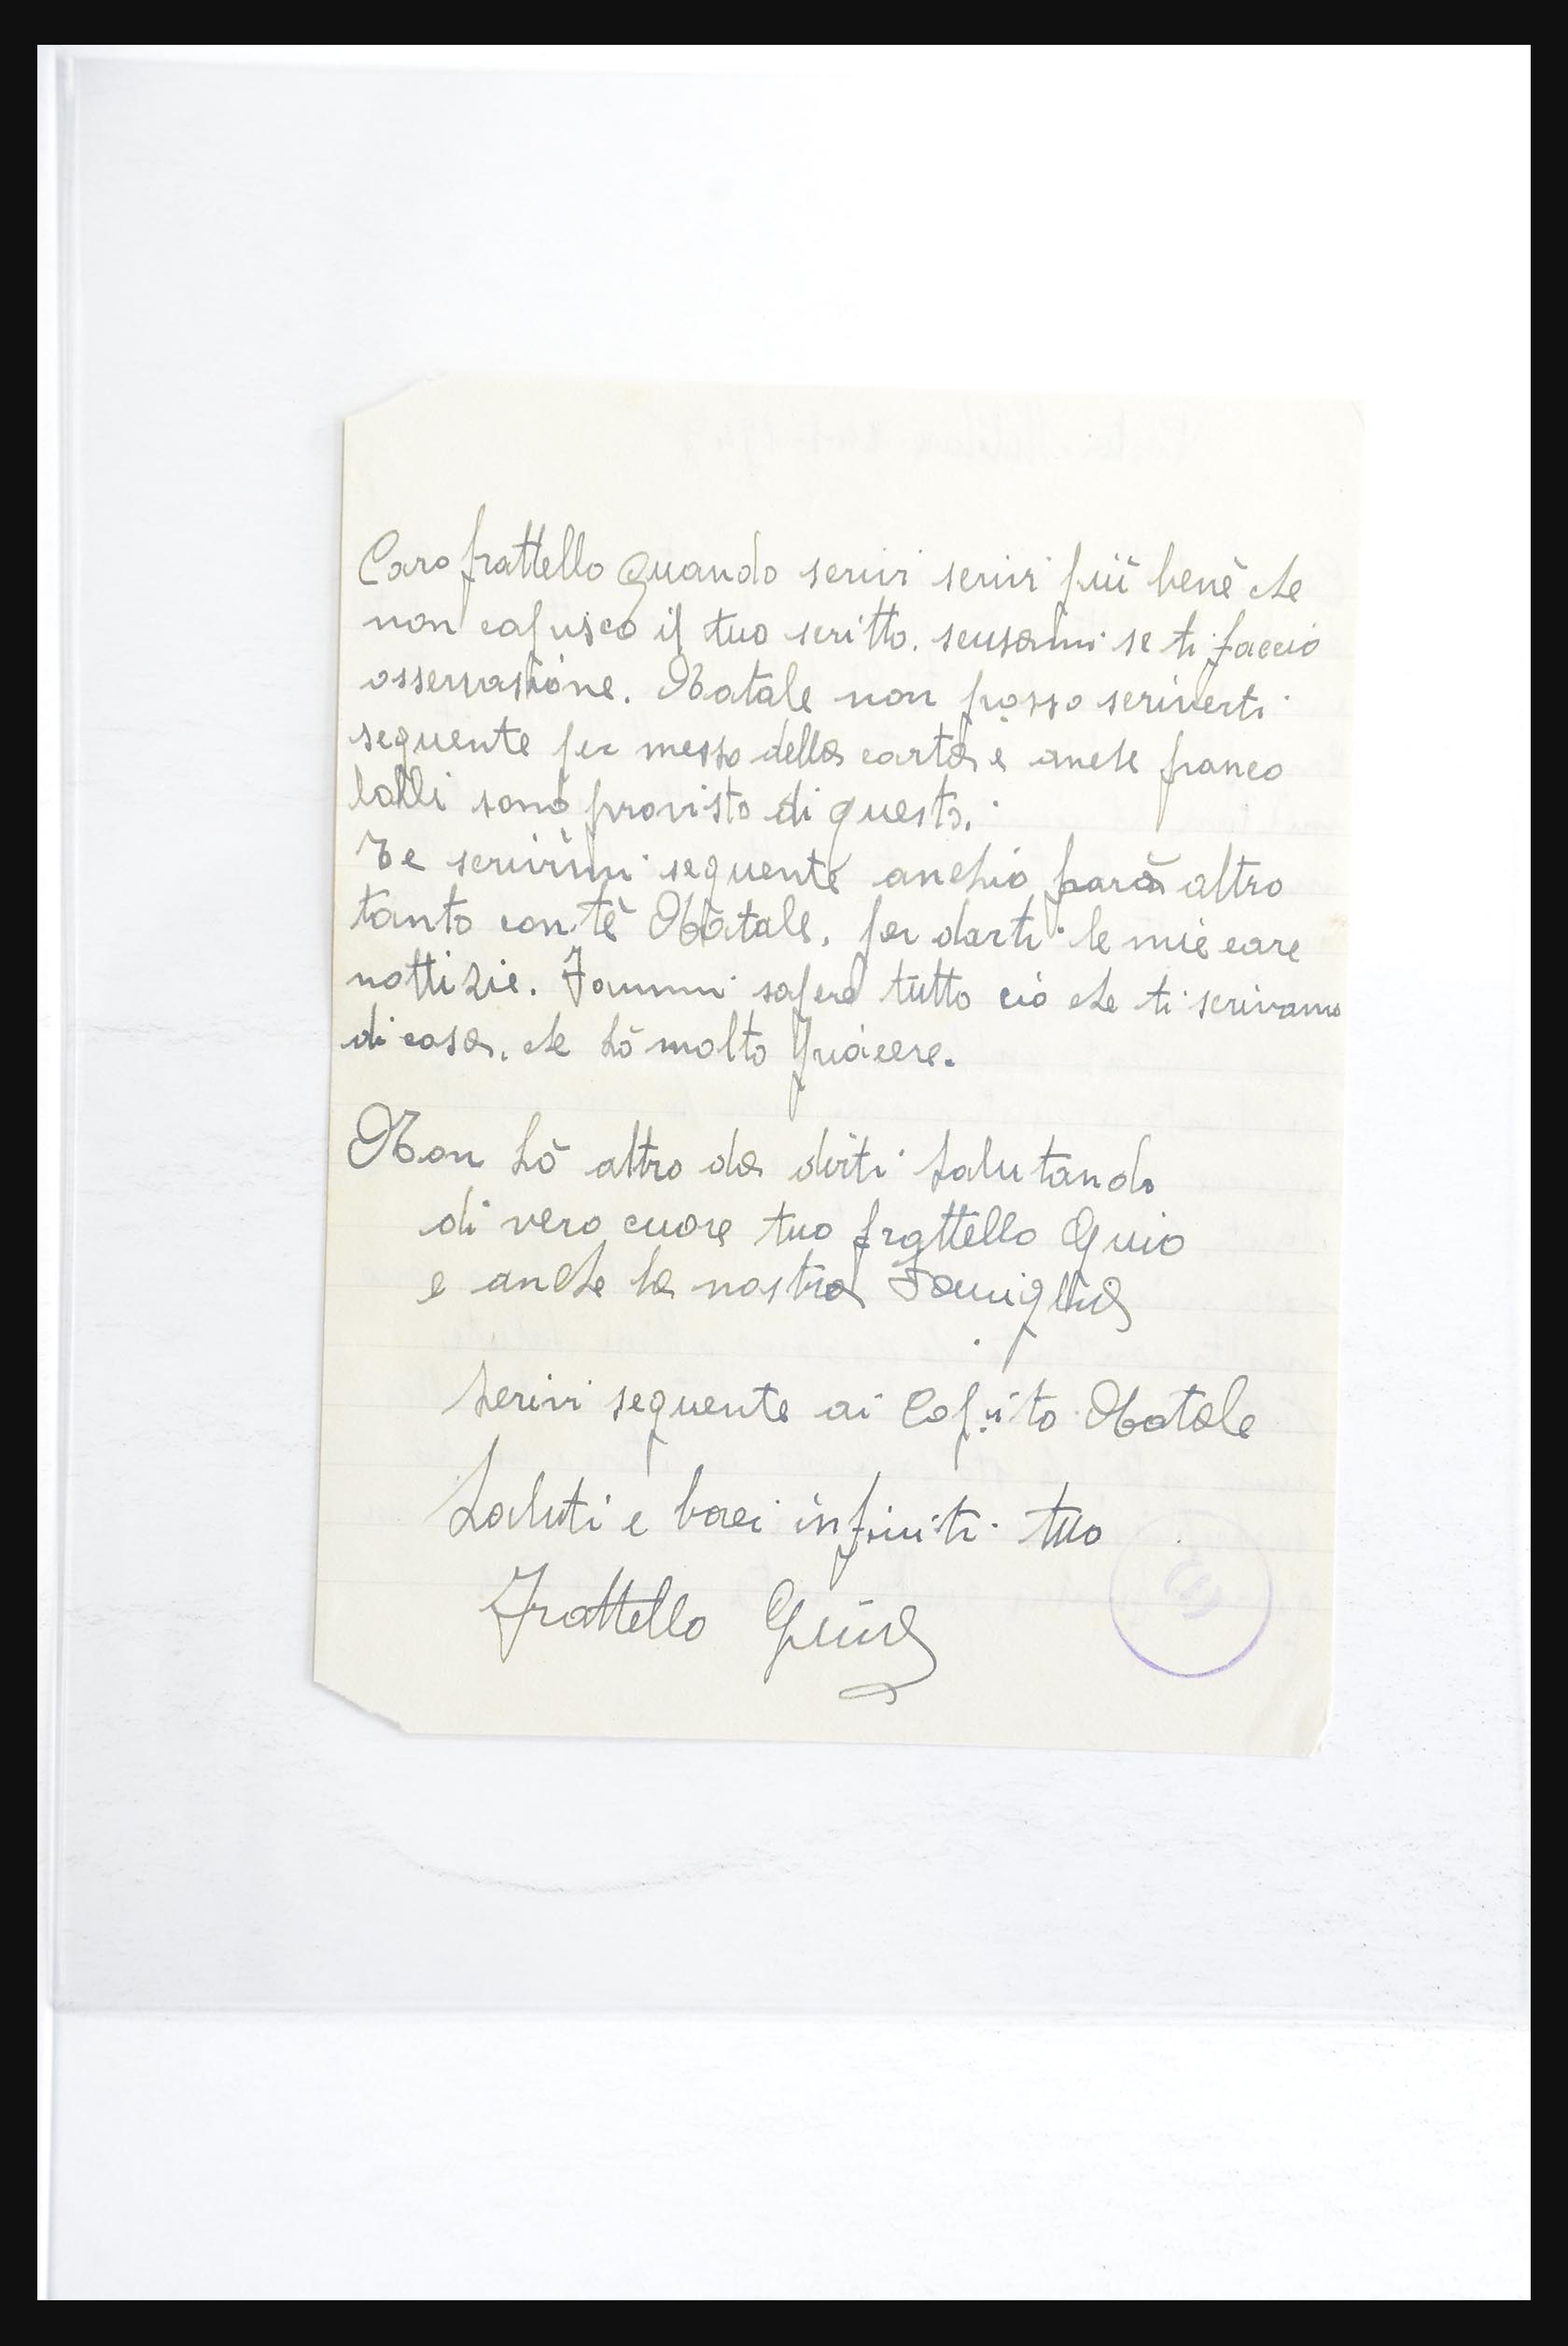 Caro frattello Quando scrivi scrivi più benè che
non capisco il tuo scritto. scusami se ti faccio
osservasione. Natale non posso scriverti
sequente per messo della carta e anche franco
bolli sono provisto di questo.
Te scrivimi sequente anchio farà altro
tanto con tè Natale, per darti le mie care
nottizie. Fammi sapere tutto ciò che ti scrivano
di casa, che hò molto piacere.
Non hò altro da dirti salutando
di vero cuore tuo frattello
e anche la nostra Famiglia
scrivi sequente ai Capito Natale
Saluti e baci infiniti tuo
Frattello